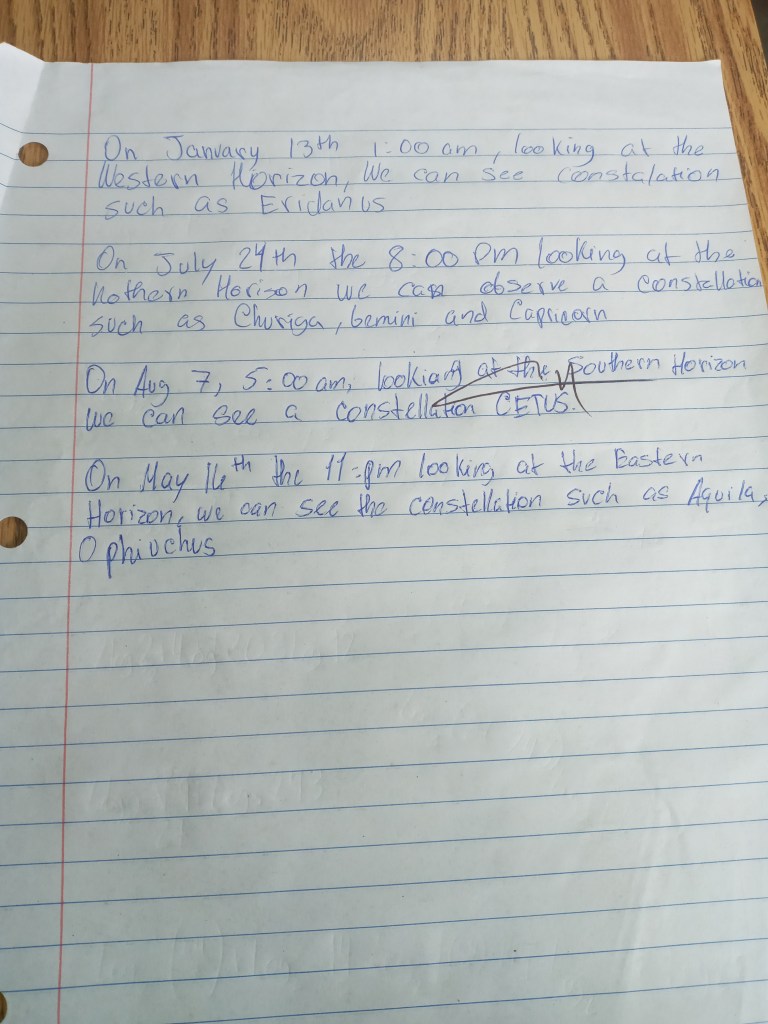 On January 13th 1:00 am, looking at the
Western Horizon, We can see constalation
such as Eridanus
On July 24th the 8:00 Pm looking at the
Nothern Horison we can observe a constellation
such as Churiga, Gemini and Capricorn
On Aug 7, 5:00 am, looking at the Southern Horizon
we can see a constellation CETUS.
On May 16th the 11-pm looking at the Eastern
Horizon, we can see the constellation such as Aquila,
Ophiuchus